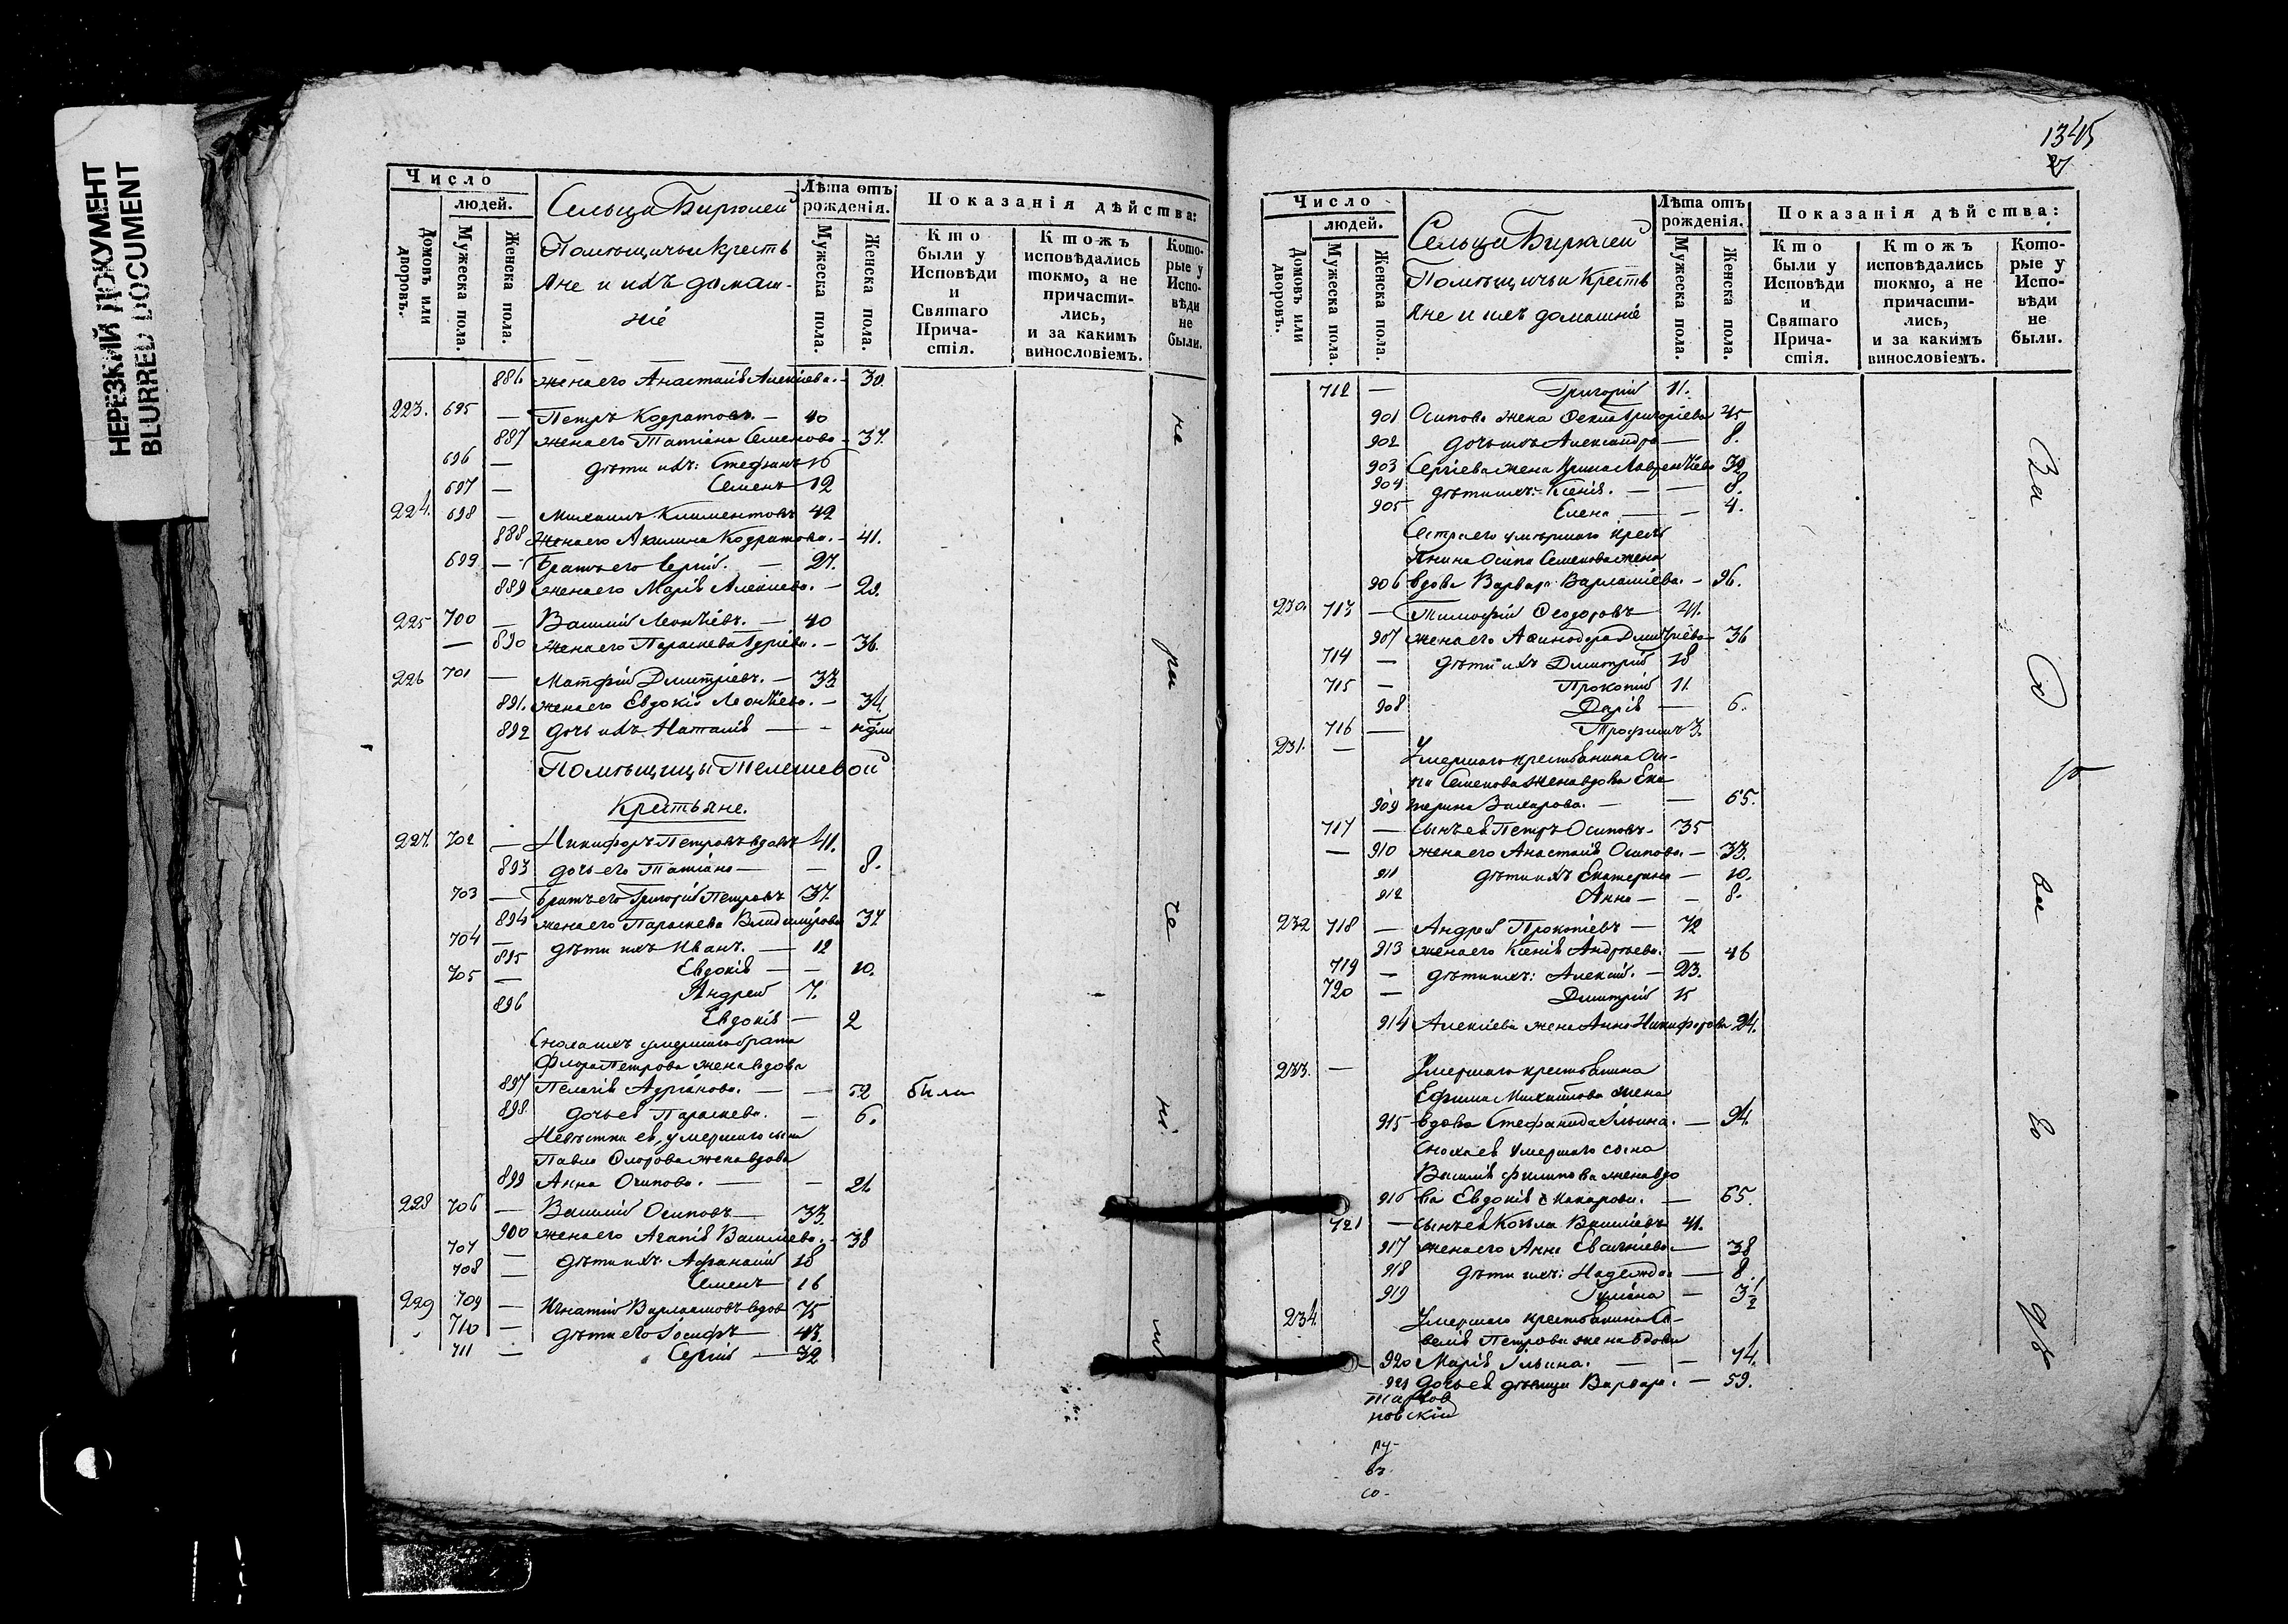 НЕРЕЗКИЙ ДОКУМЕНТ
BLURRED DOCUMENT
Число
людей.
Домовъ или дворовъ.
Мужеска пола.
Женска пола.
Сельца Бирюлей
Помѣщичьи кресть
яне и ихъ домаш-
ніе
Лѣта отъ рожденія.
Мужеска пола.
Женска пола.
Показанія дѣйства:
Кто были у Исповѣди и Святаго Причастія.
Ктожъ исповѣдались токмо, а не причастились, и за какимъ винословіемъ.
Которые у Исповѣди не были.
886 жена его Анастасія Алексіева. 30.
223. 695 — Петръ Кодратовъ. — 40
887 жена его Татіана Семенова — 37.
696 — дѣти ихъ: Стефанъ 16
697 — Семенъ 12
224. 698 — Михаилъ Климентовъ 42
888 Жена его Акилина Кодратова. — 41.
699 — Братъ его Сергій. — 27.
889 жена его Марія Алексіева. —
225 700 — Василій Леонтіевъ. — 40
— 890 жена его Параскева — 36.
226 701 — Матфій Дмитріевъ. — 33
891. жена его Евдокія Леонтіева. — 34.
892 дочь ихъ Наталія — —
Помѣщицы Телешевой
Крестьяне.
227. 702 — Никифоръ Петровъ вдовъ 41.
893 дочь его Татіана — — 8.
703 — Братъ его Григорій Петровъ 37.
894 жена его Параскева Владимірова 37
704 — дѣти ихъ Иванъ. — 12
895 Евдокія — — 10.
705 — Андрей 7.
896 Евдокія — 2
Сноха ихъ умершаго брата
Флора Петрова жена вдова
897 Пелагія Адріанова. — — 52 была
898. дочь ея Параскева. — 6.
Невѣстка ея, умершаго сына
Павла Флорова жена вдова
899 Анна Осипова. — — 21
228 706 — Василій Осиповъ — 33.
900 жена его Агапія Васильева. — 38
707 — дѣти ихъ Афанасій 18
708 — Семенъ 16
229 709 — Игнатій Варлаамовъ вдов 75
710 — дѣти его Іосифъ — 43.
711 — Сергій — 32
1345
27
Число
людей.
Домовъ или дворовъ.
Мужеска пола.
Женска пола.
Сельца Бирюлей
Помѣщичьи кресть
яне и ихъ домашніе
Лѣта отъ рожденія.
Мужеска пола.
Женска пола.
Показанія дѣйства:
Кто были у Исповѣди и Святаго Причастія.
Ктожъ исповѣдались токмо, а не причастились, и за какимъ винословіемъ.
Которые у Исповѣди не были.
712 — Григорій 11.
901 Осипова жена Григоріева 45
902 дочь ихъ Александра — 8.
903 Сергіева жена Ирина
904 дѣти ихъ: Ксенія. — — 8.
905 Елена — — 4.
Сестра его умершаго крест
янина Осипа Семенова жена
906 вдова Варвара Варлаамова. —
230. 713 — Тимофій Феодоровъ — 41.
907 жена его Дмитріева — 36
714 — дѣти ихъ Дмитрій 18
715 — Прокопій 11.
908 Дарія — 6.
716 — Трофимъ 3.
231. — Умершаго крестьянина Оси-
па Семенова жена вдова Ека
909 терина Захарова. — — 65.
717 — сынъ ея Петръ Осиповъ — 35
— 910 жена его Анастасія Осипова. — 33.
911 дѣти ихъ Екатерина — 10.
912 Анна — — 8.
232 718 — Андрей Прокопіевъ — 72
913 жена его Ксенія Андреева. — 46
719 — дѣти ихъ: Алексій. — 23.
720 — Дмитрій 15
914 Алексіева жена Анна Никифорова 24.
233. — Умершаго крестьянина
Ефима Михайлова жена
915 вдова Стефанида Ильина. —
Сноха ея умершаго сына
Василія Филипова жена вдо
916 ва Евдокія Макарова. — 65.
721 — сынъ ея Косьма Василіевъ 41.
917 жена его Анна — 38
918 дѣти ихъ: Надежда — 8.
919 — 3½
234 Умершаго крестьянина Са-
велія Петрова жена вдова
920 Марія Ильина. — — 74.
921 дочь ея дѣвица Варвара. — 59.
ру-
въ
со-